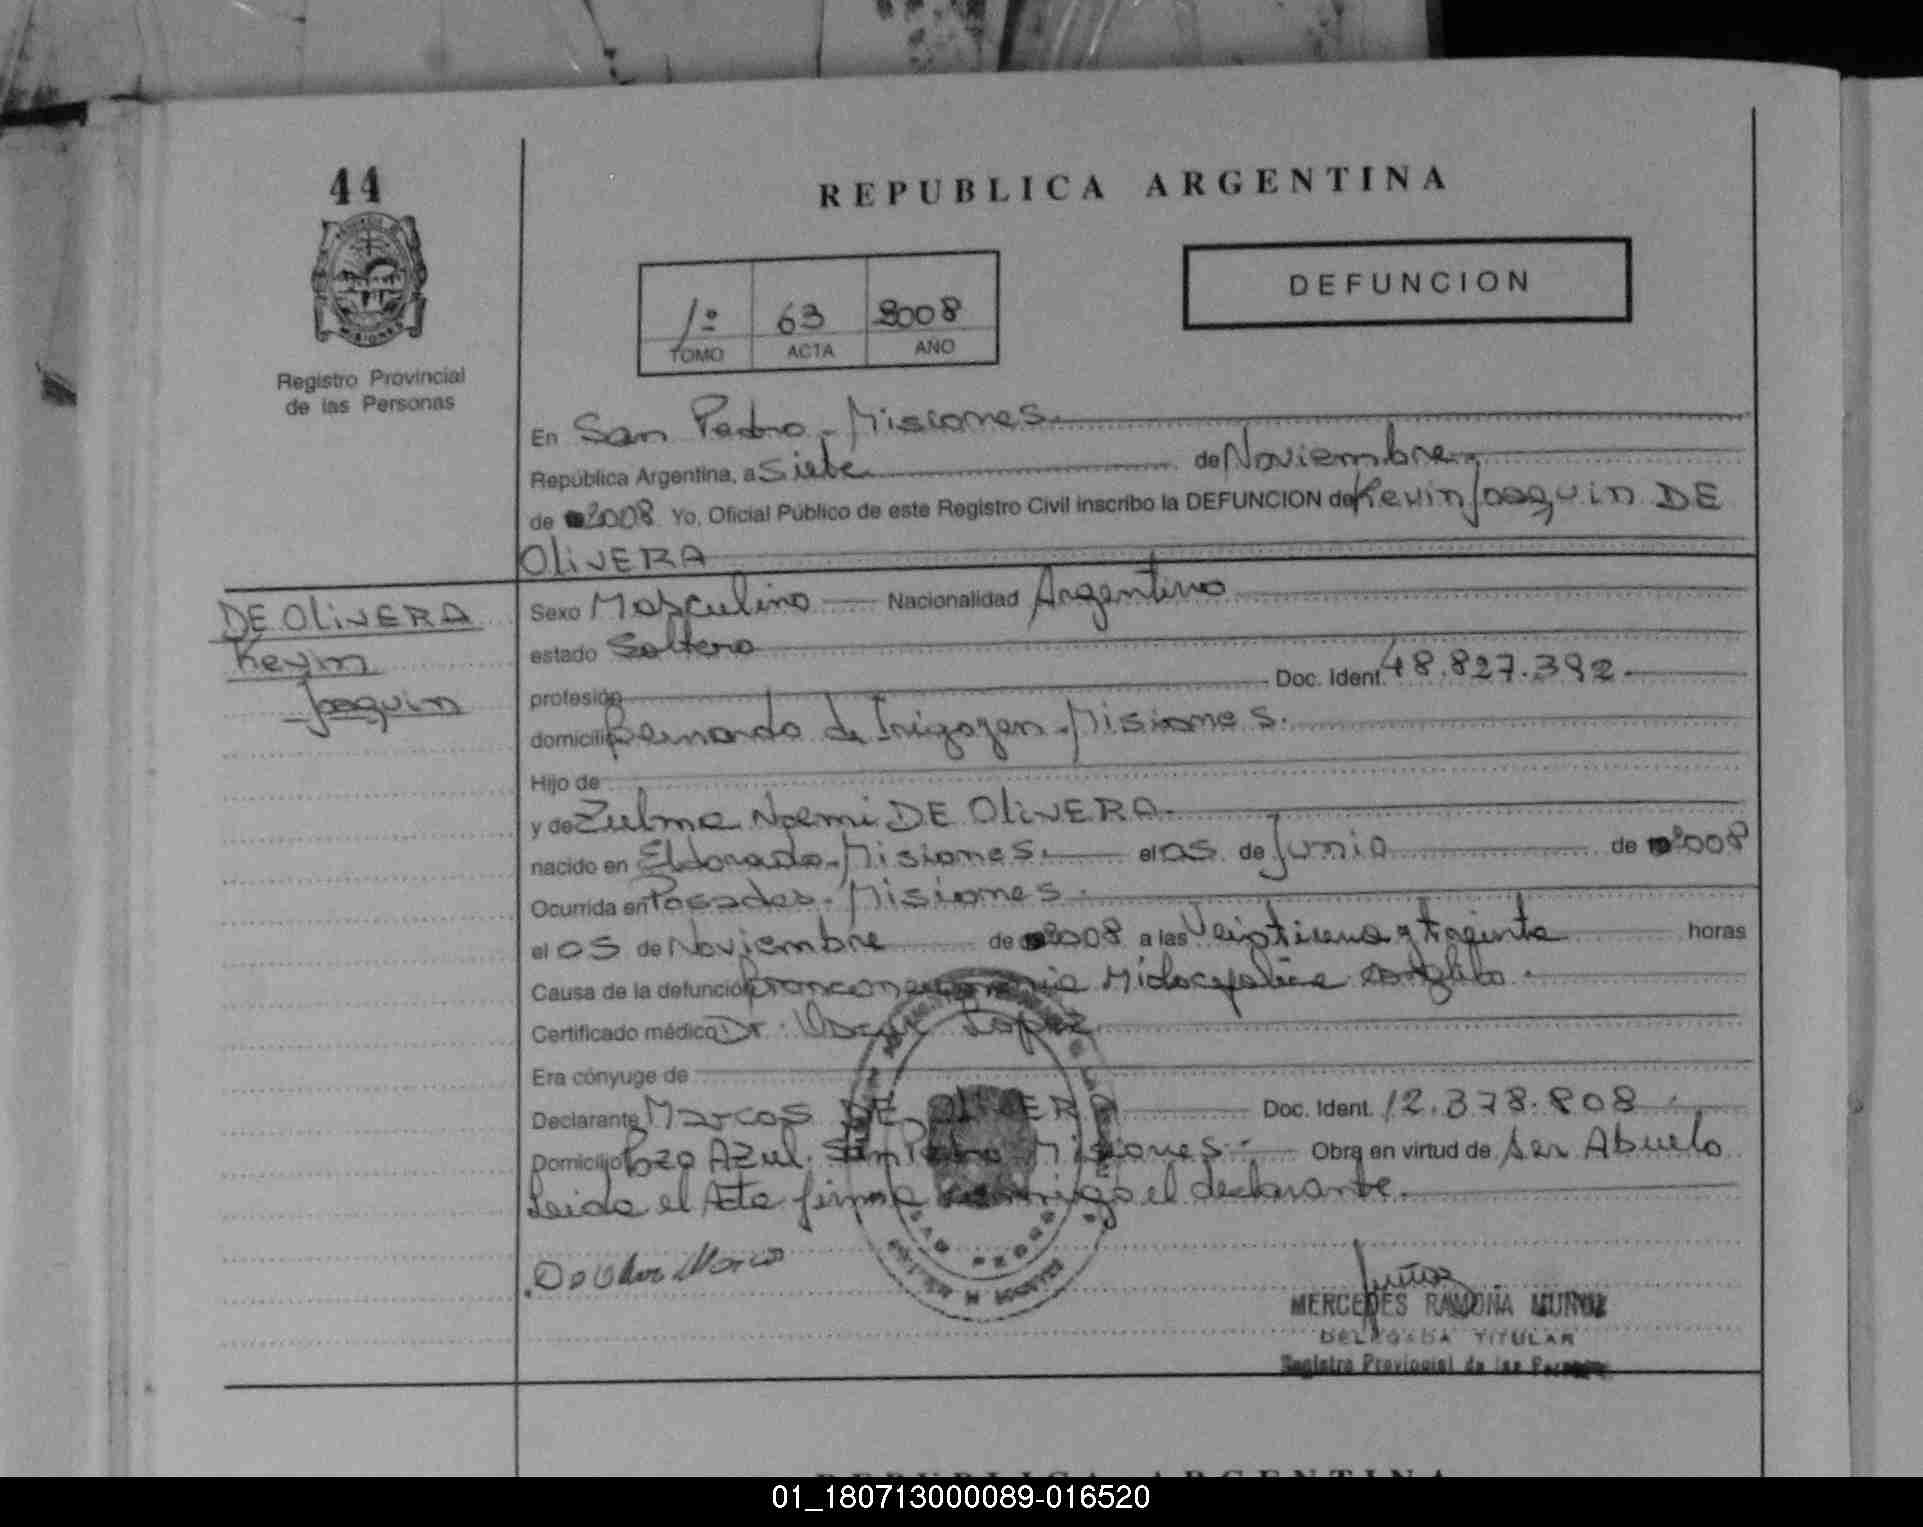 44
REPUBLICA ARGENTINA
DEFUNCION
1º 63 2008
TOMO ACTA AÑO
Registro Provincial
de las Personas
En San Pedro - Misiones
República Argentina, a Siete de Noviembre
de 2008 Yo, Oficial Público de este Registro Civil inscribo la DEFUNCION de Kevin Joaquin DE
OliVERA
DE OliVERA
Kevin
Joaquin
Sexo Masculino Nacionalidad Argentino
estado Soltero
profesión Doc. Ident. 48.827.392
domicilio Bernardo de Irigoyen - Misiones.
Hijo de
y de Zulma Noemi DE OliVERA
nacido en Eldorado - Misiones. el 05 de Junio de 2008
Ocurrida en Posadas - Misiones
el 05 de Noviembre de 2008 a las Veintiuna y treinta horas
Causa de la defunción
Certificado médico Dr. Oscar Lopez
Era cónyuge de
Declarante Marcos DE OliVERA Doc. Ident. 12.378.808
Domicilio Pozo Azul. San Pedro Misiones Obra en virtud de ser Abuelo
Leida el Acta firma conmigo el declarante.
MERCEDES RAMONA MUÑOZ
DELEGADA TITULAR
Registro Provincial de las Personas
REPUBLICA ARGENTINA
01_180713000089-016520